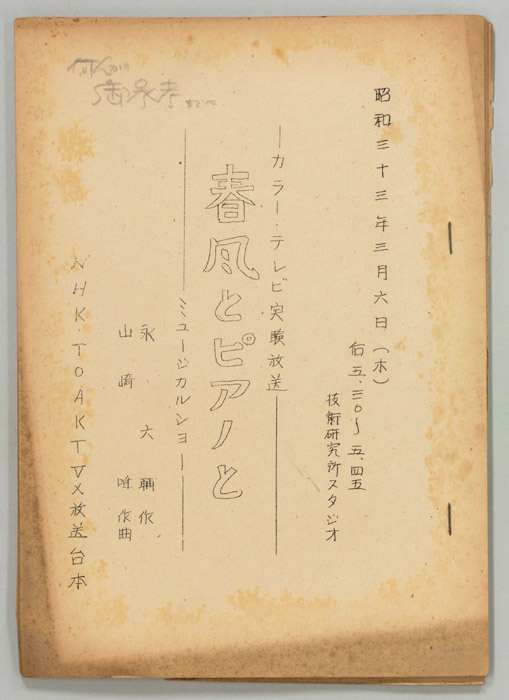 昭和三十三年三月六日(木)
后五、三〇〜五、四五
技術研究所スタジオ
―カラー・テレビ実験放送―
春風とピアノと
―ミュージカルショー―
永 六輔 作
山崎 唯 作曲
NHK・TOAKTVX放送台本
御参考
までに